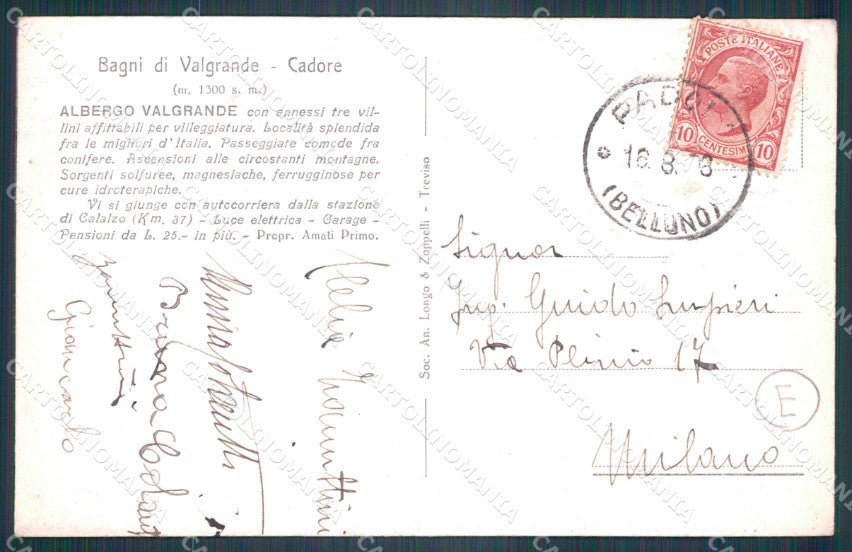 Bagni di Valgrande - Cadore
(m. 1300 s. m.)
ALBERGO VALGRANDE con annessi tre vil-
lini affittabili per villeggiatura. Località splendida
fra le migliori d'Italia. Passeggiate comode fra
conifere. Ascensioni alle circostanti montagne.
Sorgenti solfuree, magnesiache, ferrugginose per
cure idroterapiche.
Vi si giunge con autocorriera dalla stazione
di Calalzo (Km. 37) - Luce elettrica - Garage -
Pensioni da L. 25.- in più. - Propr. Amati Primo.
Giancarlo
Bruna
Soc. An. Longo & Zoppelli - Treviso
POSTE ITALIANE
10 CENTESIMI 10
16.8.
(BELLUNO)
Signor
Ing. Guido
Via Plinio 17
Milano
E
CARTOLINOMANIA